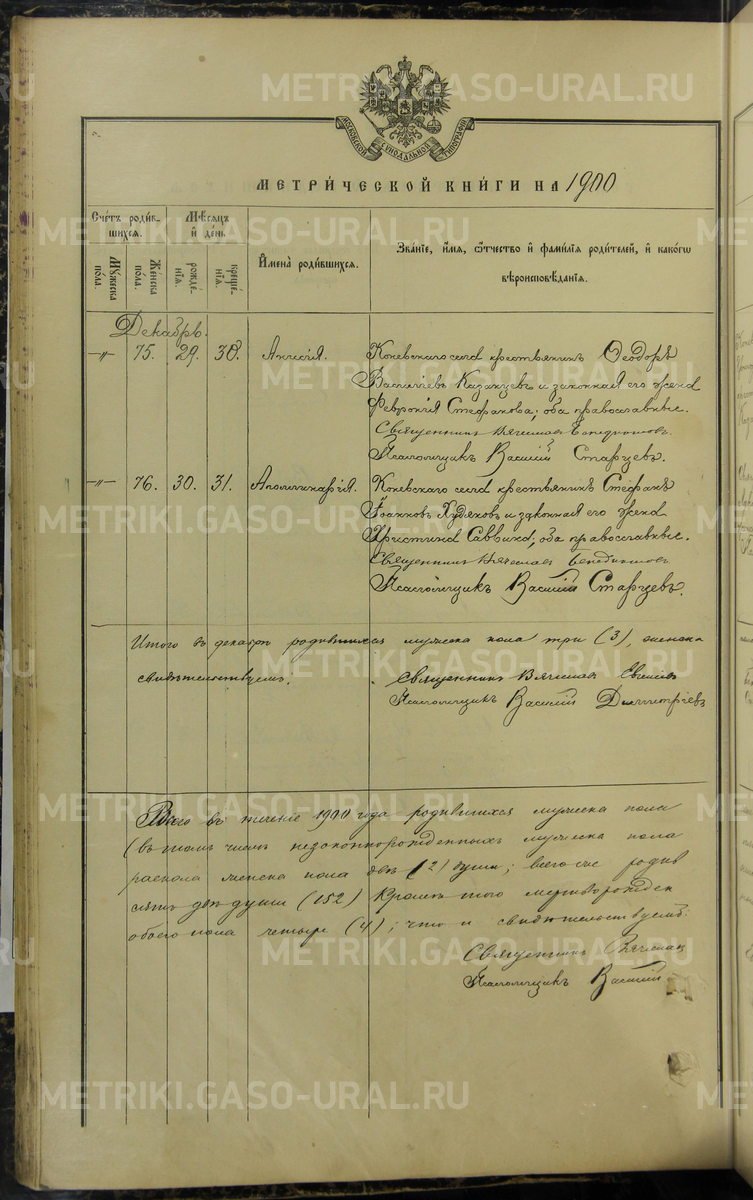 METRIKI.GASO-URAL.RU
МОСКОВСКОЙ СѴНОДАЛЬНОЙ ТИПОГРАФІИ
МЕТРИ́ЧЕСКОЙ КНИ́ГИ НА 1900
Сче́тъ роди́вшихся.
Мѣ́сяцъ и҆ де́нь
Мꙋ́жеска по́ла.
Же́нска по́ла.
рожде́нїѧ.
креще́нїѧ.
И҆мена̀ роди́вшихсѧ.
Зва́нїе, и҆́мѧ, ѻ҆́тчество и҆ фами́лїѧ роди́телей, и҆ како́гѡ
вѣроисповѣ́данїѧ.
Декабрь.
—"— 75. 29. 30. Анисія. Коневскаго села крестьянинъ Ѳеодоръ
Васильевъ Казанцевъ и законная его жена
Февронія Стефанова; оба православные.
Священникъ Вячеславъ
Псаломщикъ Василій Старцевъ.
—"— 76. 30. 31. Аполлинарія. Коневскаго села крестьянинъ Стефанъ
Іоанновъ Худяковъ и законная его жена
Христина Саввина; оба православные.
Священникъ Вячеславъ
Псаломщикъ Василій Старцевъ.
Итого въ декабрѣ родившихся мужеска пола три (3), женска
свидѣтельствуемъ: Священникъ Вячеславъ
Псаломщикъ Василій Димитріевъ
Всего въ теченіе 1900 года родившихся мужеска пола
(въ томъ числѣ незаконнорожденныхъ мужеска пола
раскола женска пола двѣ (2) души; всего же родив
сятъ двѣ души (152) кромѣ того мертворожден
обоего пола четыре (4); что и свидѣтельствуемъ:
Священникъ Вячеслав
Псаломщикъ Василій